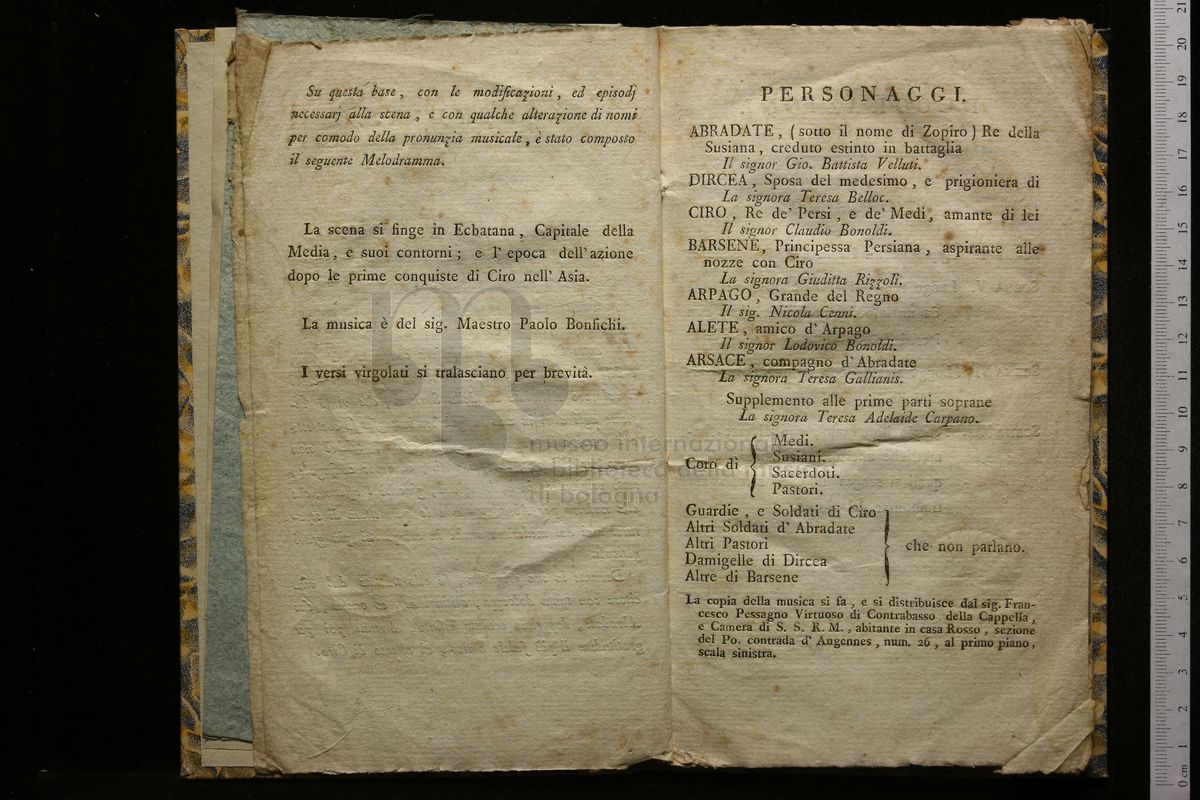 Su questa base, con le modificazioni, ed episodj
necessarj alla scena, e con qualche alterazione di nomi
per comodo della pronunzia musicale, è stato composto
il seguente Melodramma.
La scena si finge in Ecbatana, Capitale della
Media, e suoi contorni; e l'epoca dell'azione
dopo le prime conquiste di Ciro nell'Asia.
La musica è del sig. Maestro Paolo Bonfichi.
I versi virgolati si tralasciano per brevità.
PERSONAGGI.
ABRADATE, (sotto il nome di Zopiro) Re della
Susiana, creduto estinto in battaglia
Il signor Gio. Battista Velluti.
DIRCEA, Sposa del medesimo, e prigioniera di
La signora Teresa Belloc.
CIRO, Re de' Persi, e de' Medi, amante di lei
Il signor Claudio Bonoldi.
BARSENE, Principessa Persiana, aspirante alle
nozze con Ciro
La signora Giuditta Rizzoli.
ARPAGO, Grande del Regno
Il sig. Nicola Cenni.
ALETE, amico d'Arpago
Il signor Lodovico Bonoldi.
ARSACE, compagno d'Abradate
La signora Teresa Gallianis.
Supplemento alle prime parti soprane
La signora Teresa Adelaide Carpano.
Coro di
Medi.
Susiani.
Sacerdoti.
Pastori.
Guardie, e Soldati di Ciro
Altri Soldati d'Abradate
Altri Pastori
Damigelle di Dircea
Altre di Barsene
che non parlano.
La copia della musica si fa, e si distribuisce dal sig. Fran-
cesco Pessagno Virtuoso di Contrabasso della Cappella,
e Camera di S. S. R. M., abitante in casa Rosso, sezione
del Po. contrada d'Angennes, num. 26, al primo piano,
scala sinistra.
museo internazionale
e biblioteca della musica
di bologna
0 cm 1 2 3 4 5 6 7 8 9 10 11 12 13 14 15 16 17 18 19 20 21